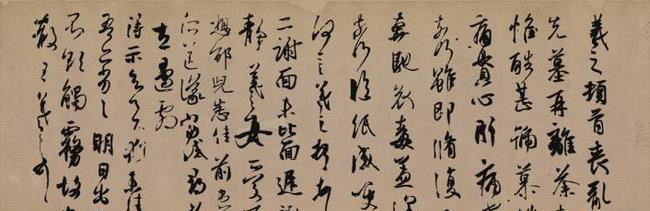 羲之頓首喪亂
先墓再離荼
惟酷甚號慕摧
痛貫心肝痛
奈何雖即脩復
奔馳哀毒益深
奈何臨紙感哽
何言羲之頓首
二謝面未比面遲詠
靜羲之女愛再
想邢兒悉佳前患
善所送議當試尋
左邊劇
得示知足下猶未佳
吾亦劣劣明日出
不欲觸霧故
散王羲之頓